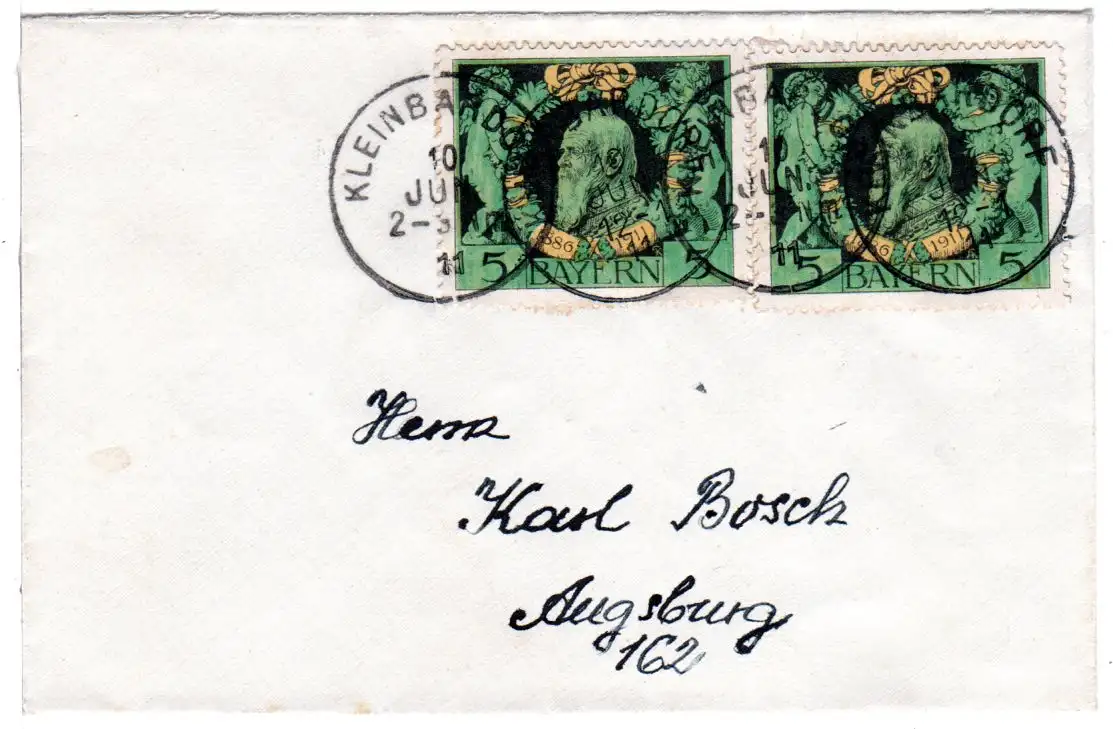 KLEINBARDORF
10
JUN
2-3 N
11
KLEINBARDORF
10
JUN
12-
11
1886 1911
5 BAYERN 5
1886 1911
5 BAYERN 5
Herrn
Karl Bosch
Augsburg
162